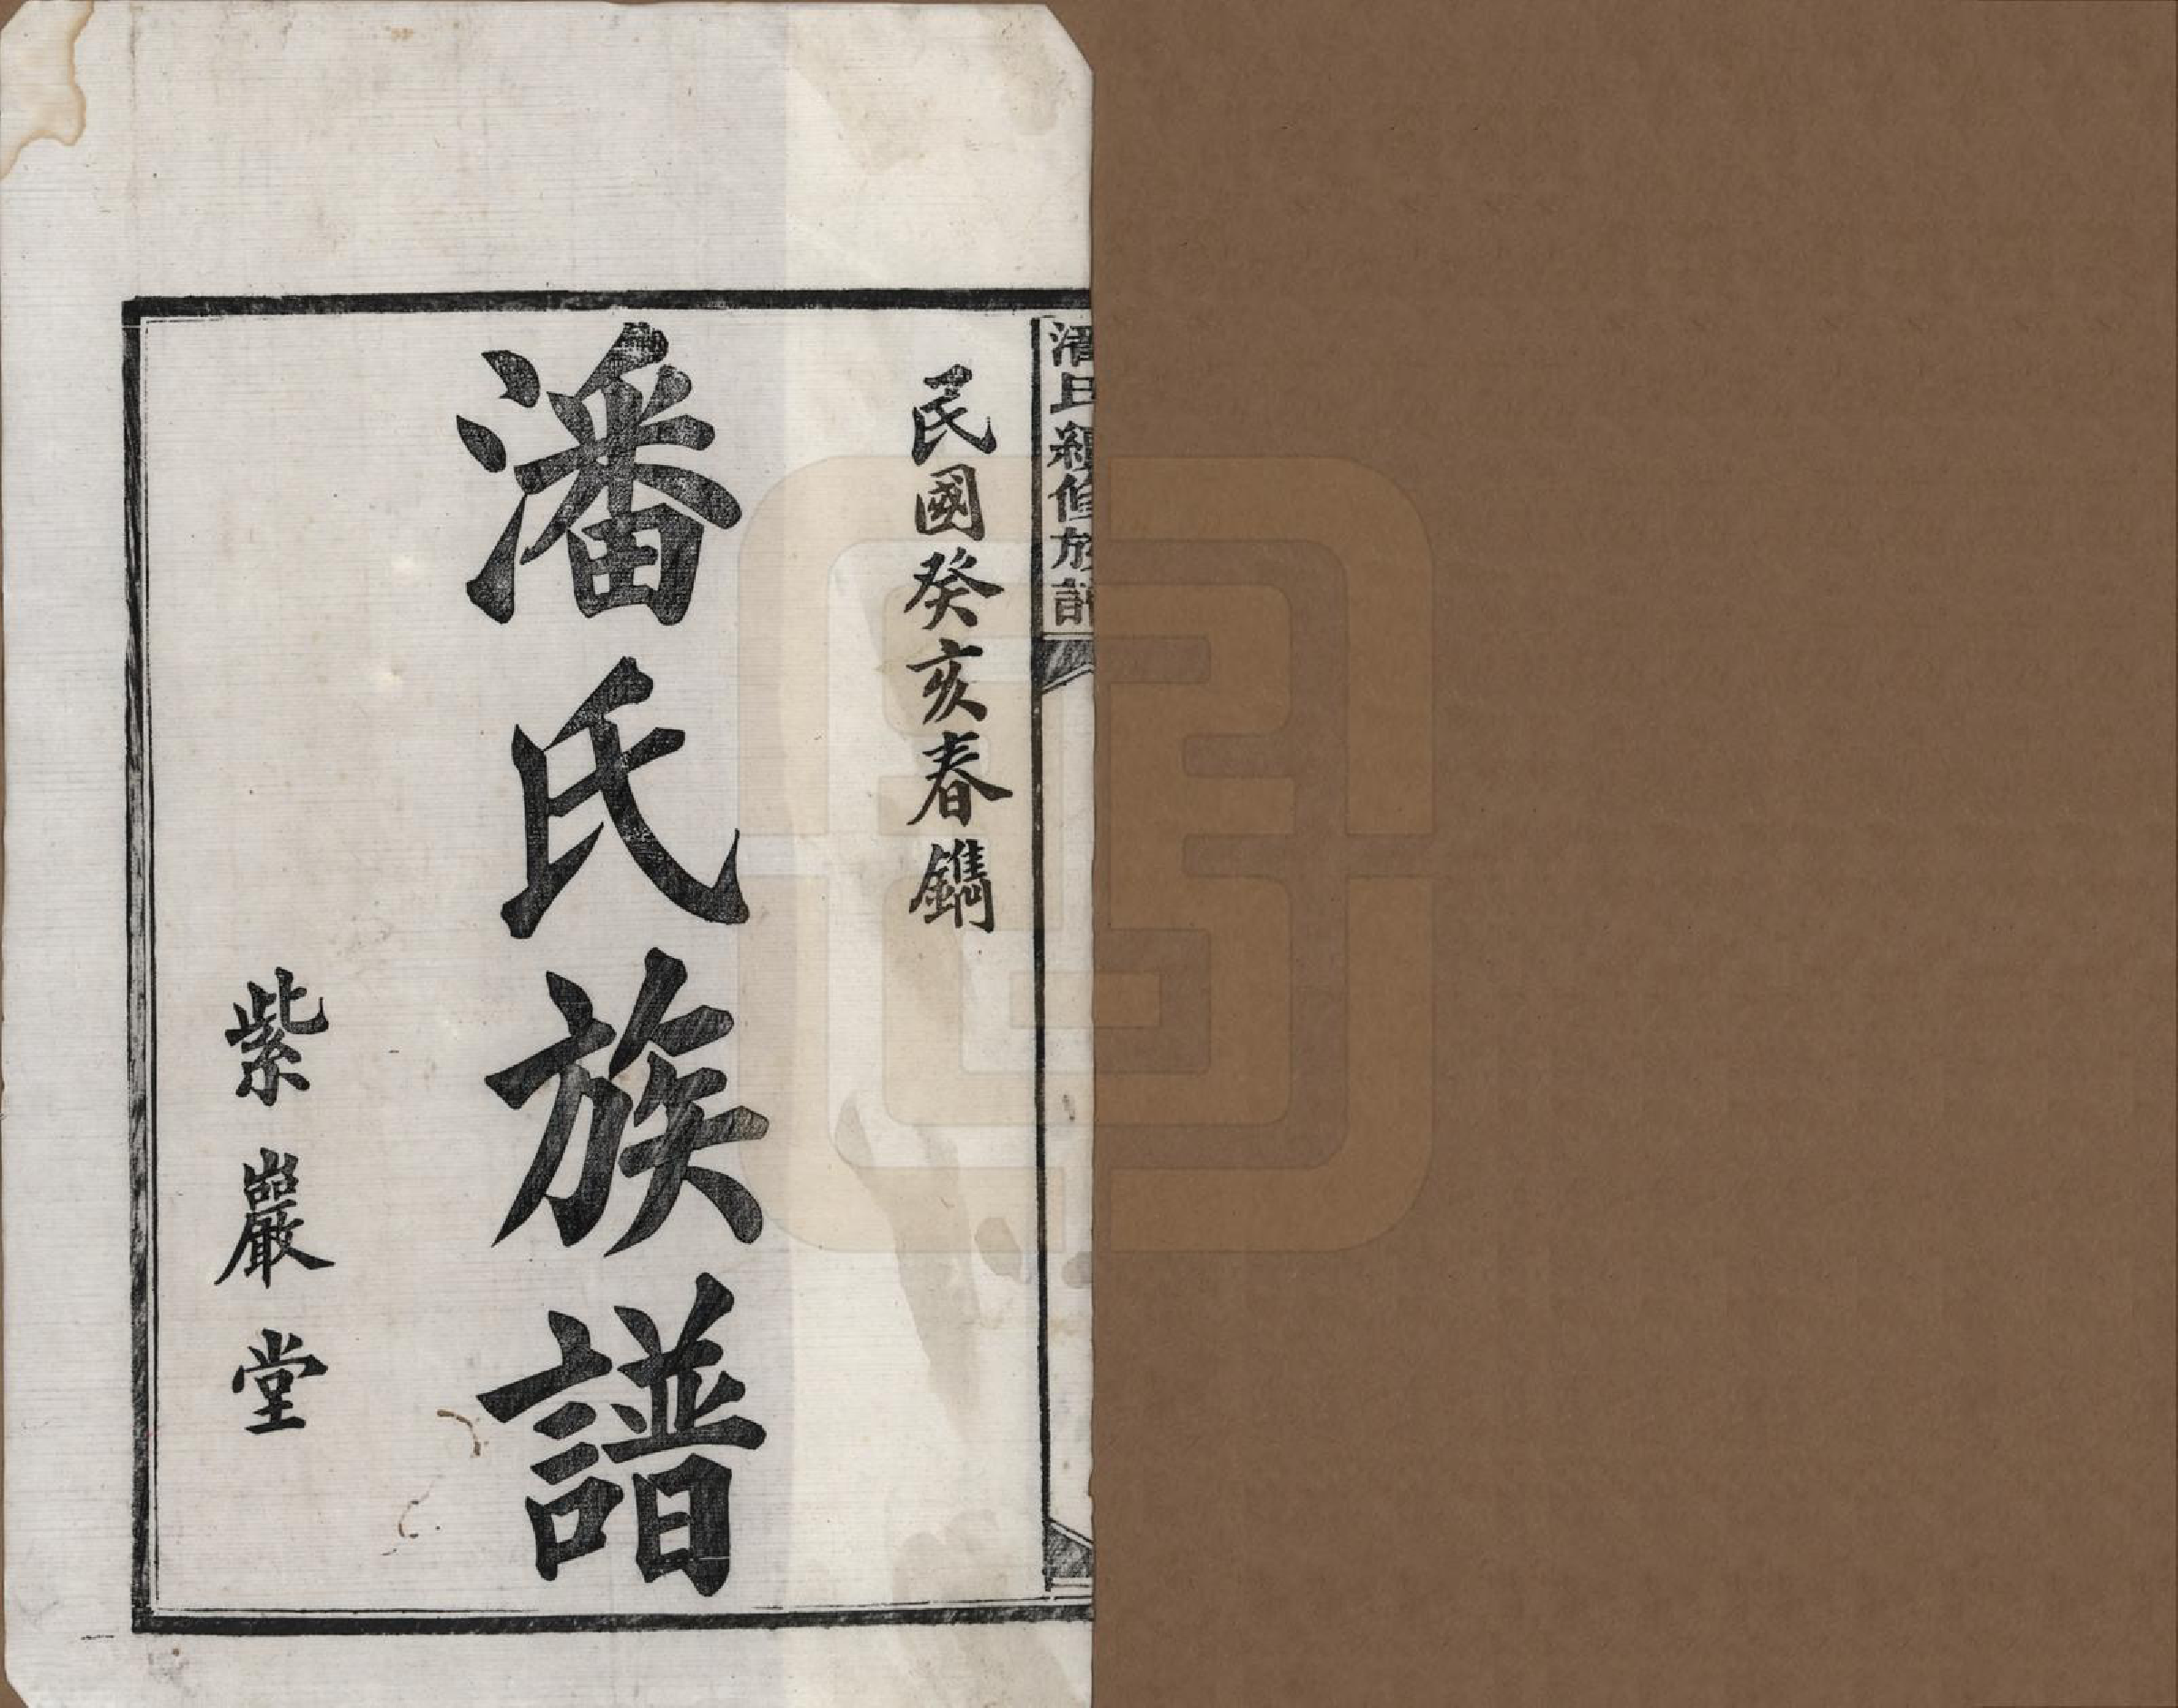 潘氏續修族譜
民國癸亥春鐫
潘氏族譜
紫巖堂